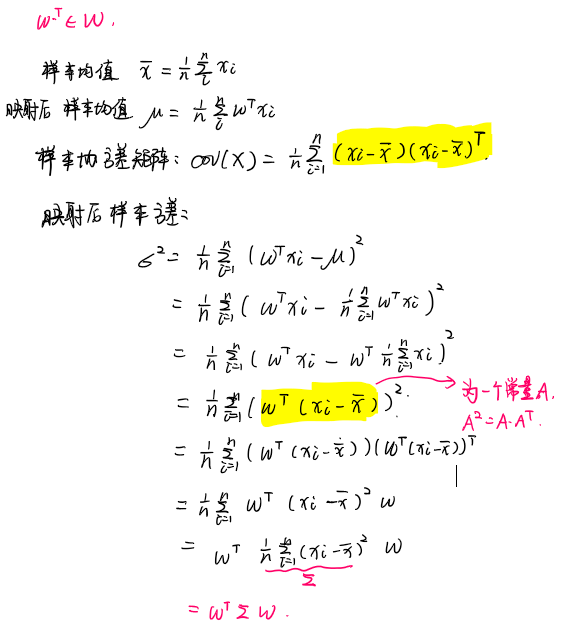 w^T ∈ W.
样本均值 x̄ = 1/n Σ_i^n xi
映射后 样本均值 μ = 1/n Σ_i^n w^T xi
样本协方差矩阵: cov(X) = 1/n Σ_{i=1}^n (xi - x̄)(xi - x̄)^T.
映射后 样本方差:
σ² = 1/n Σ_{i=1}^n (w^T xi - μ)²
= 1/n Σ_{i=1}^n (w^T xi - 1/n Σ_{i=1}^n w^T xi)²
= 1/n Σ_{i=1}^n (w^T xi - w^T 1/n Σ_{i=1}^n xi)²
= 1/n Σ_{i=1}^n (w^T (xi - x̄))².
为一个常量A.
A² = A·A^T.
= 1/n Σ_{i=1}^n (w^T (xi - x̄))(w^T (xi - x̄))^T
= 1/n Σ_{i=1}^n w^T (xi - x̄)² w
= w^T 1/n Σ_{i=1}^n (xi - x̄)² w
Σ
= w^T Σ w.